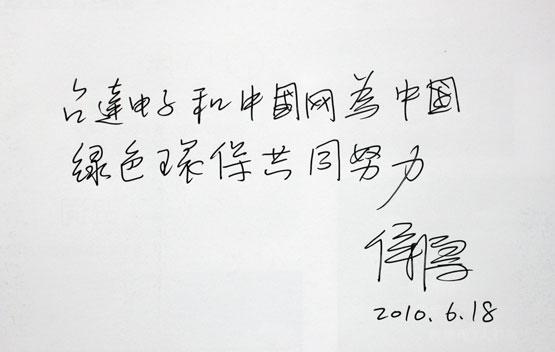 台達电子和中國网為中國
绿色環保共同努力
2010.6.18